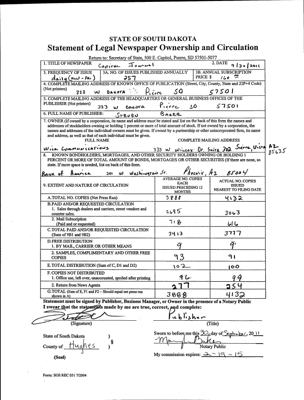 STATE OF SOUTH DAKOTA
Statement of Legal Newspaper Ownership and Circulation
Return to: Secretary of State, 500 E. Capitol, Pierre, SD 57501-5077
1. TITLE OF NEWSPAPER Capital Journal 2. DATE 9/30/2011
3. FREQUENCY OF ISSUE 3A. NO. OF ISSUES PUBLISHED ANNUALLY 3B. ANNUAL SUBSCRIPTION
257 PRICE $
4. COMPLETE MAILING ADDRESS OF KNOWN OFFICE OF PUBLICATION (Street, City, County, State and ZIP+4 Code)
(Not printers) 333 W Dakota Pierre SD 57501
5. COMPLETE MAILING ADDRESS OF THE HEADQUARTERS OF GENERAL BUSINESS OFFICES OF THE
PUBLISHER (Not printers) 333 W Dakota Pierre SD 57501
6. FULL NAME OF PUBLISHER: Steven Baker
7. OWNER (If owned by a corporation, its name and address must be stated and list on the back of this form the names and
addresses of stockholders owning or holding 1 percent or more of total amount of stock. If not owned by a corporation, the
names and addresses of the individual owners must be given. If owned by a partnership or other unincorporated firm, its name
and address, as well as that of each individual must be given.
FULL NAME COMPLETE MAILING ADDRESS
Wick Communications 333 W Wilcox Dr. Suite 302 Sierra Vista AZ
85635
8. KNOWN BONDHOLDERS, MORTGAGEES, AND OTHER SECURITY HOLDERS OWNING OR HOLDING 1
PERCENT OR MORE OF TOTAL AMOUNT OF BONDS, MORTGAGES OR OTHER SECURITIES (If there are none, so
state. If more space is needed, list on back of this form.
Bank of America 201 W Washington St. Phoenix, AZ 85004
9. EXTENT AND NATURE OF CIRCULATION
AVERAGE NO. COPIES
EACH
ISSUED PRECEDING 12
MONTHS
ACTUAL NO. COPIES
ISSUED
NEAREST TO FILING DATE
A. TOTAL NO. COPIES (Net Press Run) 3888 4132
B. PAID AND/OR REQUESTED CIRCULATION
1. Sales through dealers and carriers, street vendors and
counter sales.
2. Mail Subscription
(Paid and or requested) 718 616
C. TOTAL PAID AND/OR REQUESTED CIRCULATION
(Sum of 9B1 and 9B2)
D. FREE DISTRIBUTION
1. BY MAIL, CARRIER OR OTHER MEANS 9 9
2. SAMPLES, COMPLIMENTARY AND OTHER FREE
COPIES 93 91
E. TOTAL DISTRIBUTION (Sum of C, D1 and D2) 102 100
F. COPIES NOT DISTRIBUTED
1. Office use, left over, unaccounted, spoiled after printing 96 99
2. Return from News Agents 277 254
G. TOTAL (Sum of E, F1 and F2 - Should equal net press run
shown in A) 3888 4132
Statement must be signed by Publisher, Business Manager, or Owner in the presence of a Notary Public
I swear that the statements made by me are true, correct, and complete:
Publisher
(Signature) (Title)
State of South Dakota )
County of Hughes ) §
(Seal)
Sworn to before me this 30 day of September, 2011
Baker
Notary Public
My commission expires: 2-19-15
Form: SOS REC 051 7/2004